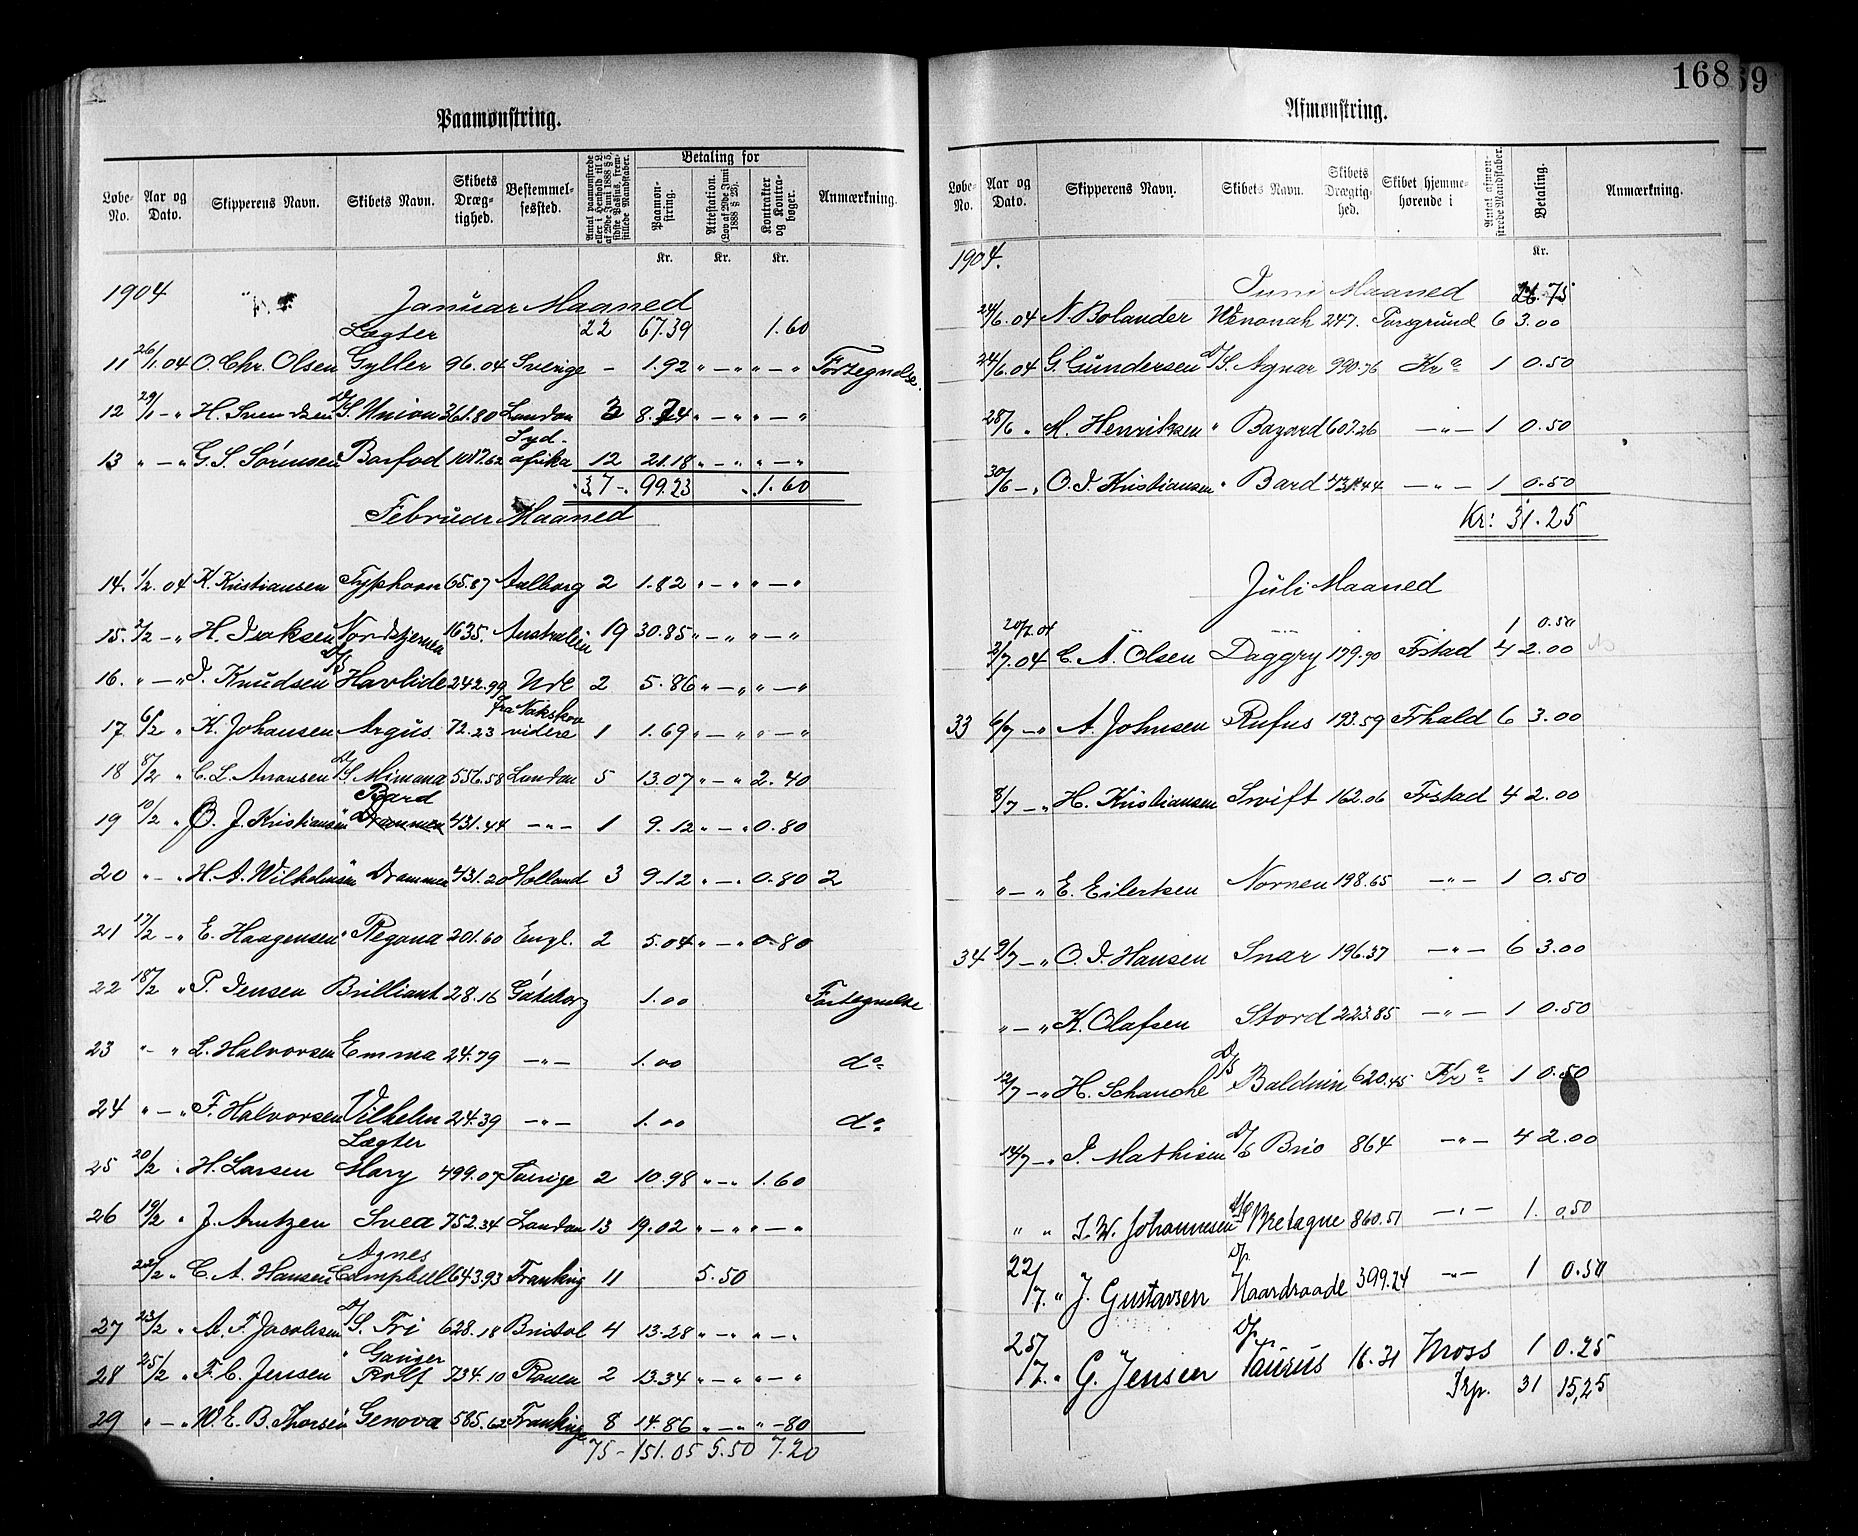 168
59
Paamønstring.
Løbe-No. Aar og Dato. Skipperens Navn. Skibets Navn. Skibets Dræg-tighed. Bestemmel-sessted. Antal paamønstrede eller i Henhold til L. af 29de Juni 1888 § 5, sidste Passus, frem-stillede Mandskaber. Betaling for Paamøn-string. Attestation. (Lov af 29de Juni 1888 § 28). Kontrakter og Kontra-bøger. Anmærkning.
Kr. Kr. Kr.
1904
Januar Maaned
Lægter 22 67.39 1.60
11 26/1.04 O. Chr. Olsen Gyller 96.04 Sverige - 1.92 " - " " - " Fortegnelse.
12 29/1 - " H. Svendsen D/S. Union 361.80 London 3 8.74 " - " " - "
13 " - " G. S. Sörensen Barfod 1017.62 Syd-afrika 12 21.18 " - " " - "
37 - 99.23 " . 1.60
Februar Maaned
14. 1/2.04 K. Kristiansen Typhoon 65.87 Aalborg 2 1.82 " - " " - "
15. 2/2 - " H. Isaksen Nordstjernen 1635. Australien 19 30.85 " - " " - "
16. " - " I. Knudsen D/S Havlide 242.99 Nde 2 5.86 " - " " - "
17 6/2 " K. Johansen Argus 72.23 fra Nakskov videre 1 1.69 " - " " - "
18 8/2 " C. L. Aronsen D/S Mimona 556.58 London 5 13.07 " - " 2.40
19 10/2 " O. J. Kristiansen " Bard Drammen 431.44 - " - 1 9.12 " - " 0.80
20 " - " H. A. Wilhelmsen " Drammen 431.20 Holland 3 9.12 " - " 0.80 2
21 17/2 - " E. Haagensen " Regona 201.60 Engl. 2 5.04 " - " 0.80
22 18/2 " P. Jensen Brilliant 28.16 Göteborg 1.00 Fortegnelse
23 " - " L. Halvorsen Emma 24.79 - " - 1.00 do
24 " - " F. Halvorsen Vilhelm 24.39 - " - 1.00 do
25 20/2 . H. Larsen Lægter Mary 499.07 Sverige 2 10.98 " - " 1.60
26 19/2 " J. Arntzen Svea 752.34 London 13 19.02 " - " " - "
22/2 " C. A. Hansen Agnes Campbell 643.93 Frankrig 11 5.50
27 23/2 " A. F. Jacobsen D/S. Fri 628.18 Bristol 4 13.28 " - " " - "
28 25/2 " F. C. Jensen " Ganger Rolf 734.10 Rouen 2 13.34 " - " " - "
29 " - " W. E. B. Thorsen Genova 585.62 Frankrige 8 14.86 " - " " - 80
75 - 151.05 5.50 7.20
Afmønstring.
Løbe-No. Aar og Dato. Skipperens Navn. Skibets Navn. Skibets Drægtig-hed. Skibet hjemme-hørende i Antal afmøn-strede Mandskaber. Betaling. Anmærkning.
Kr.
1904.
Juni Maaned 26.75
24/6.04 N. Bolander Wenonah 247. Porsgrund 6 3.00
24/6.04 G. Gundersen D/S. Agnar 990.76 Kra 1 0.50
28/6 " M. Henriksen " Bayard 607.26 - " - 1 0.50
30/6 - " O. J. Kristiansen " Bard 431.44 - " - 1 0.50
Kr: 31.25
Juli Maaned
20/7.04 1 0.50
2/7.04 C. A. Olsen Daggry 179.90 Frstad 4 2.00
33 6/7 - " A. Johnsen Rufus 193.59 Frhald 6 3.00
8/7 - " H. Kristiansen Swift 162.06 Frstad 4 2.00
" - " E. Eilertsen Nornen 198.65 - " - 1 0.50
34 9/7 - " O. J. Hansen Snar 196.37 - " - 6 3.00
" - " K. Olafsen Stord 223.85 - " - 1 0.50
12/7 - " H. Schanche D/S Baldwin 620.45 Kra 1 0.50
14/7 - " J. Mathisen D/S Brio 864 - " - 4 2.00
" " J. W. Johannesen D/S Bretagne 860.51 - " - 1. 0.50
22/7. " J. Gustavsen D/S Haardraade 399.24 - " - 1 0.50
25/7. " G. Jensen D/S Taurus 16.21 Moss 1 0.25
Trp. 31 15,25